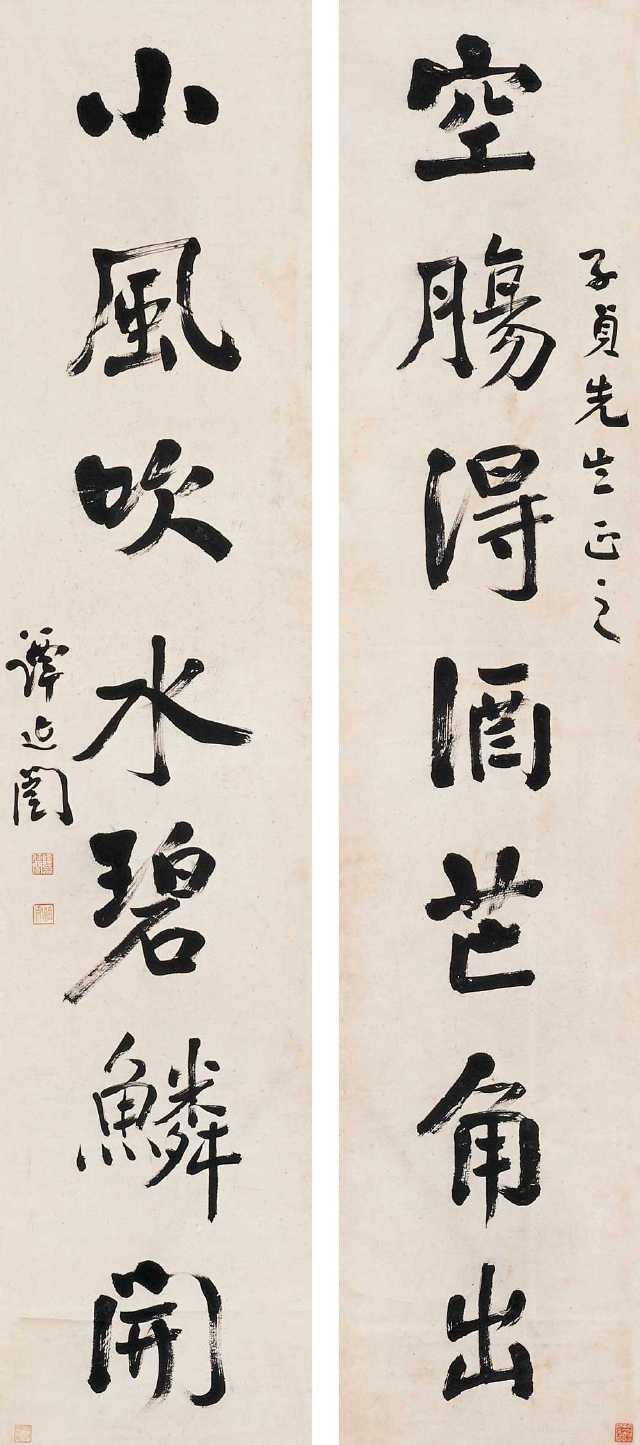 子貞先生正之
空腸得酒芒角出
小風吹水碧鱗開
譚延闓